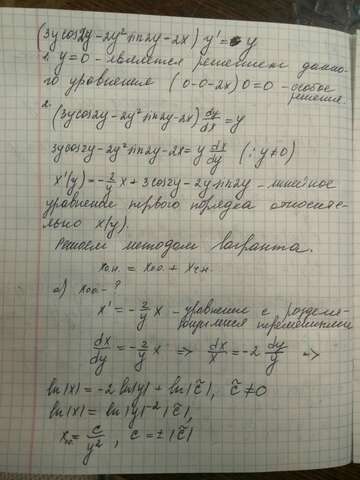 (3ycos2y-2y²sin2y-2x) y' = y
1. y=0 - является решением данно-
го уравнения (0-0-2x) 0=0 - особое
решение.
2.
(3ycos2y-2y²sin2y-2x) dy/dx = y
3ycos2y-2y²sin2y-2x = y dx/dy (: y≠0)
x'(y) = -2/y x + 3cos2y - 2y sin2y - линейное
уравнение первого порядка относитель-
но x(y).
Решаем методом
xо.н. = xо.о. + xч.н.
а) xо.о. - ?
x' = -2/y x - уравнение с разделя-
ющимися переменными
dx/dy = -2/y x => dx/x = -2 dy/y =>
ln|x| = -2 ln|y| + ln|c̃|, c̃≠0
ln|x| = ln|y|⁻²|c̃|,
x = c/y², c = ±|c̃|